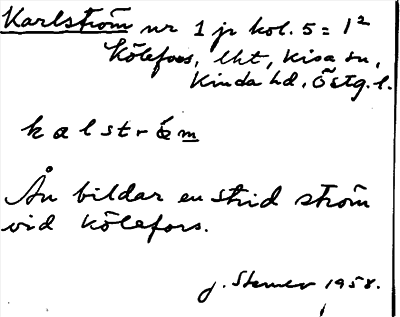 Karlström nr 1 jr kol. 5 = 1²
Kölefors, lht, Kisa sn,
Kinda hd, Östg. l.
kalström
Ån bildar en strid ström
vid Kölefors.
J. Sterner 1958.